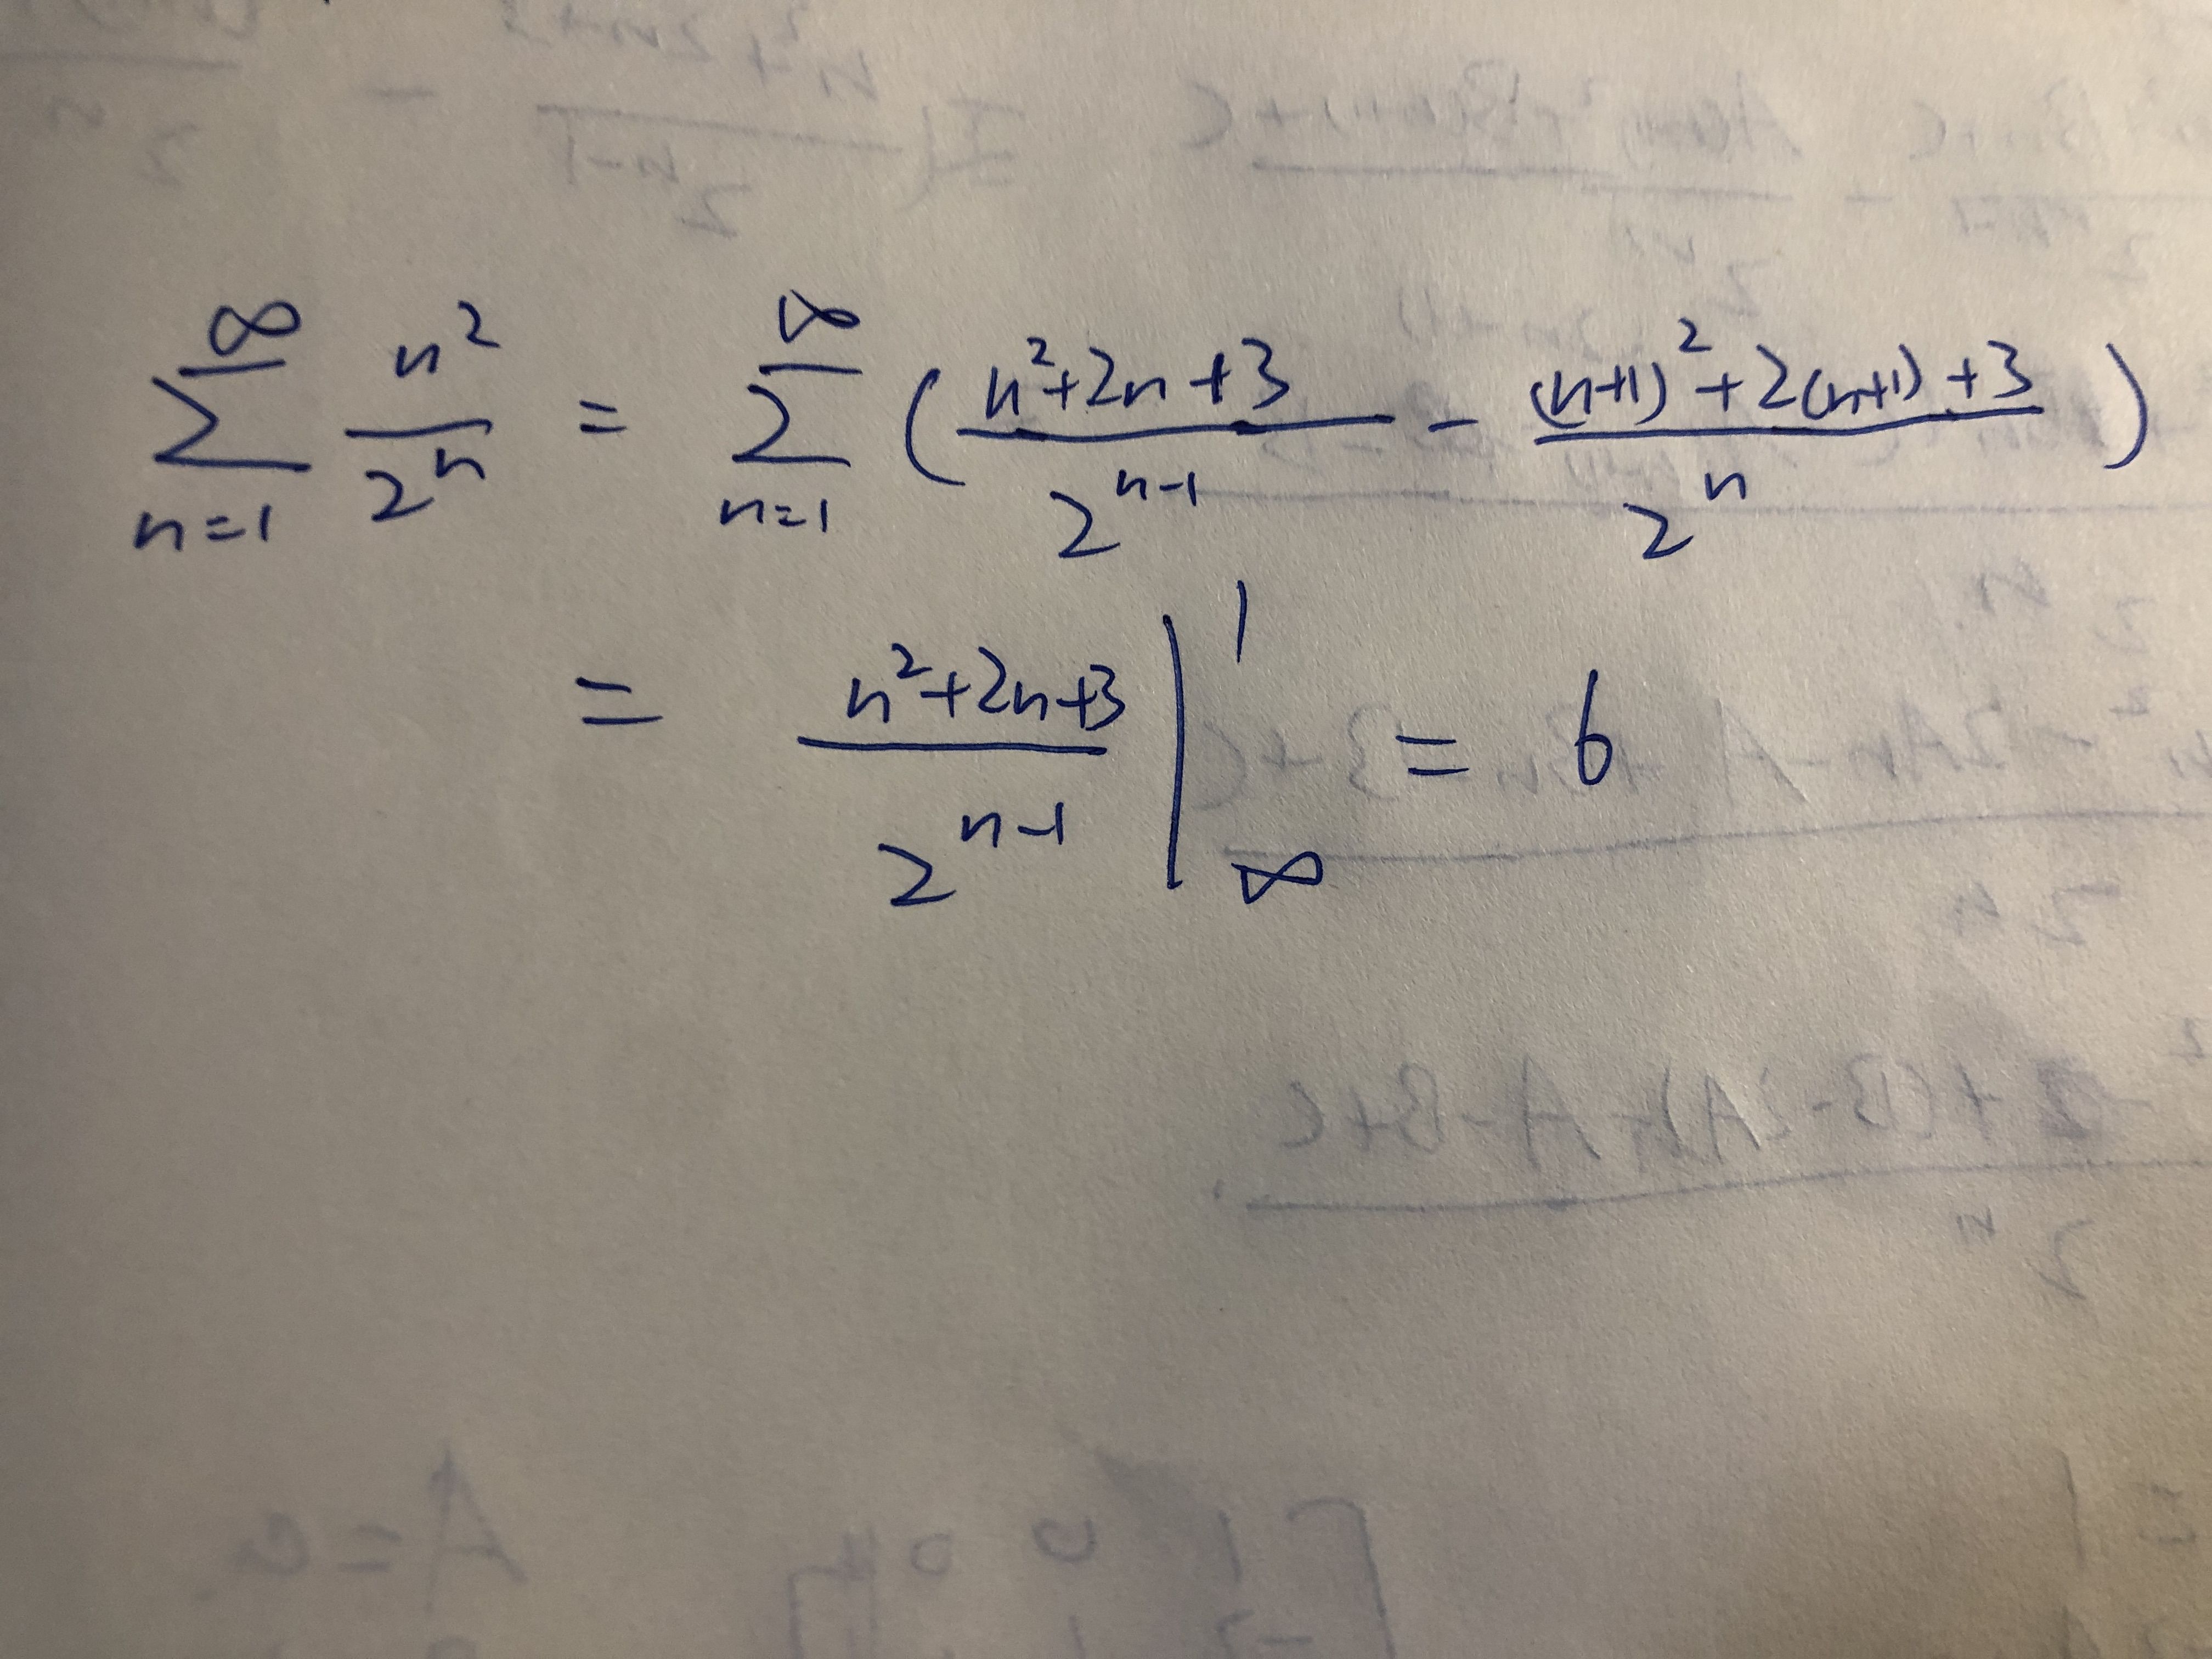 ∑_{n=1}^{∞} n²/2ⁿ = ∑_{n=1}^{∞} ( (n²+2n+3)/2^{n-1} - ((n+1)²+2(n+1)+3)/2ⁿ )
= (n²+2n+3)/2^{n-1} |_{∞}^{1} = 6